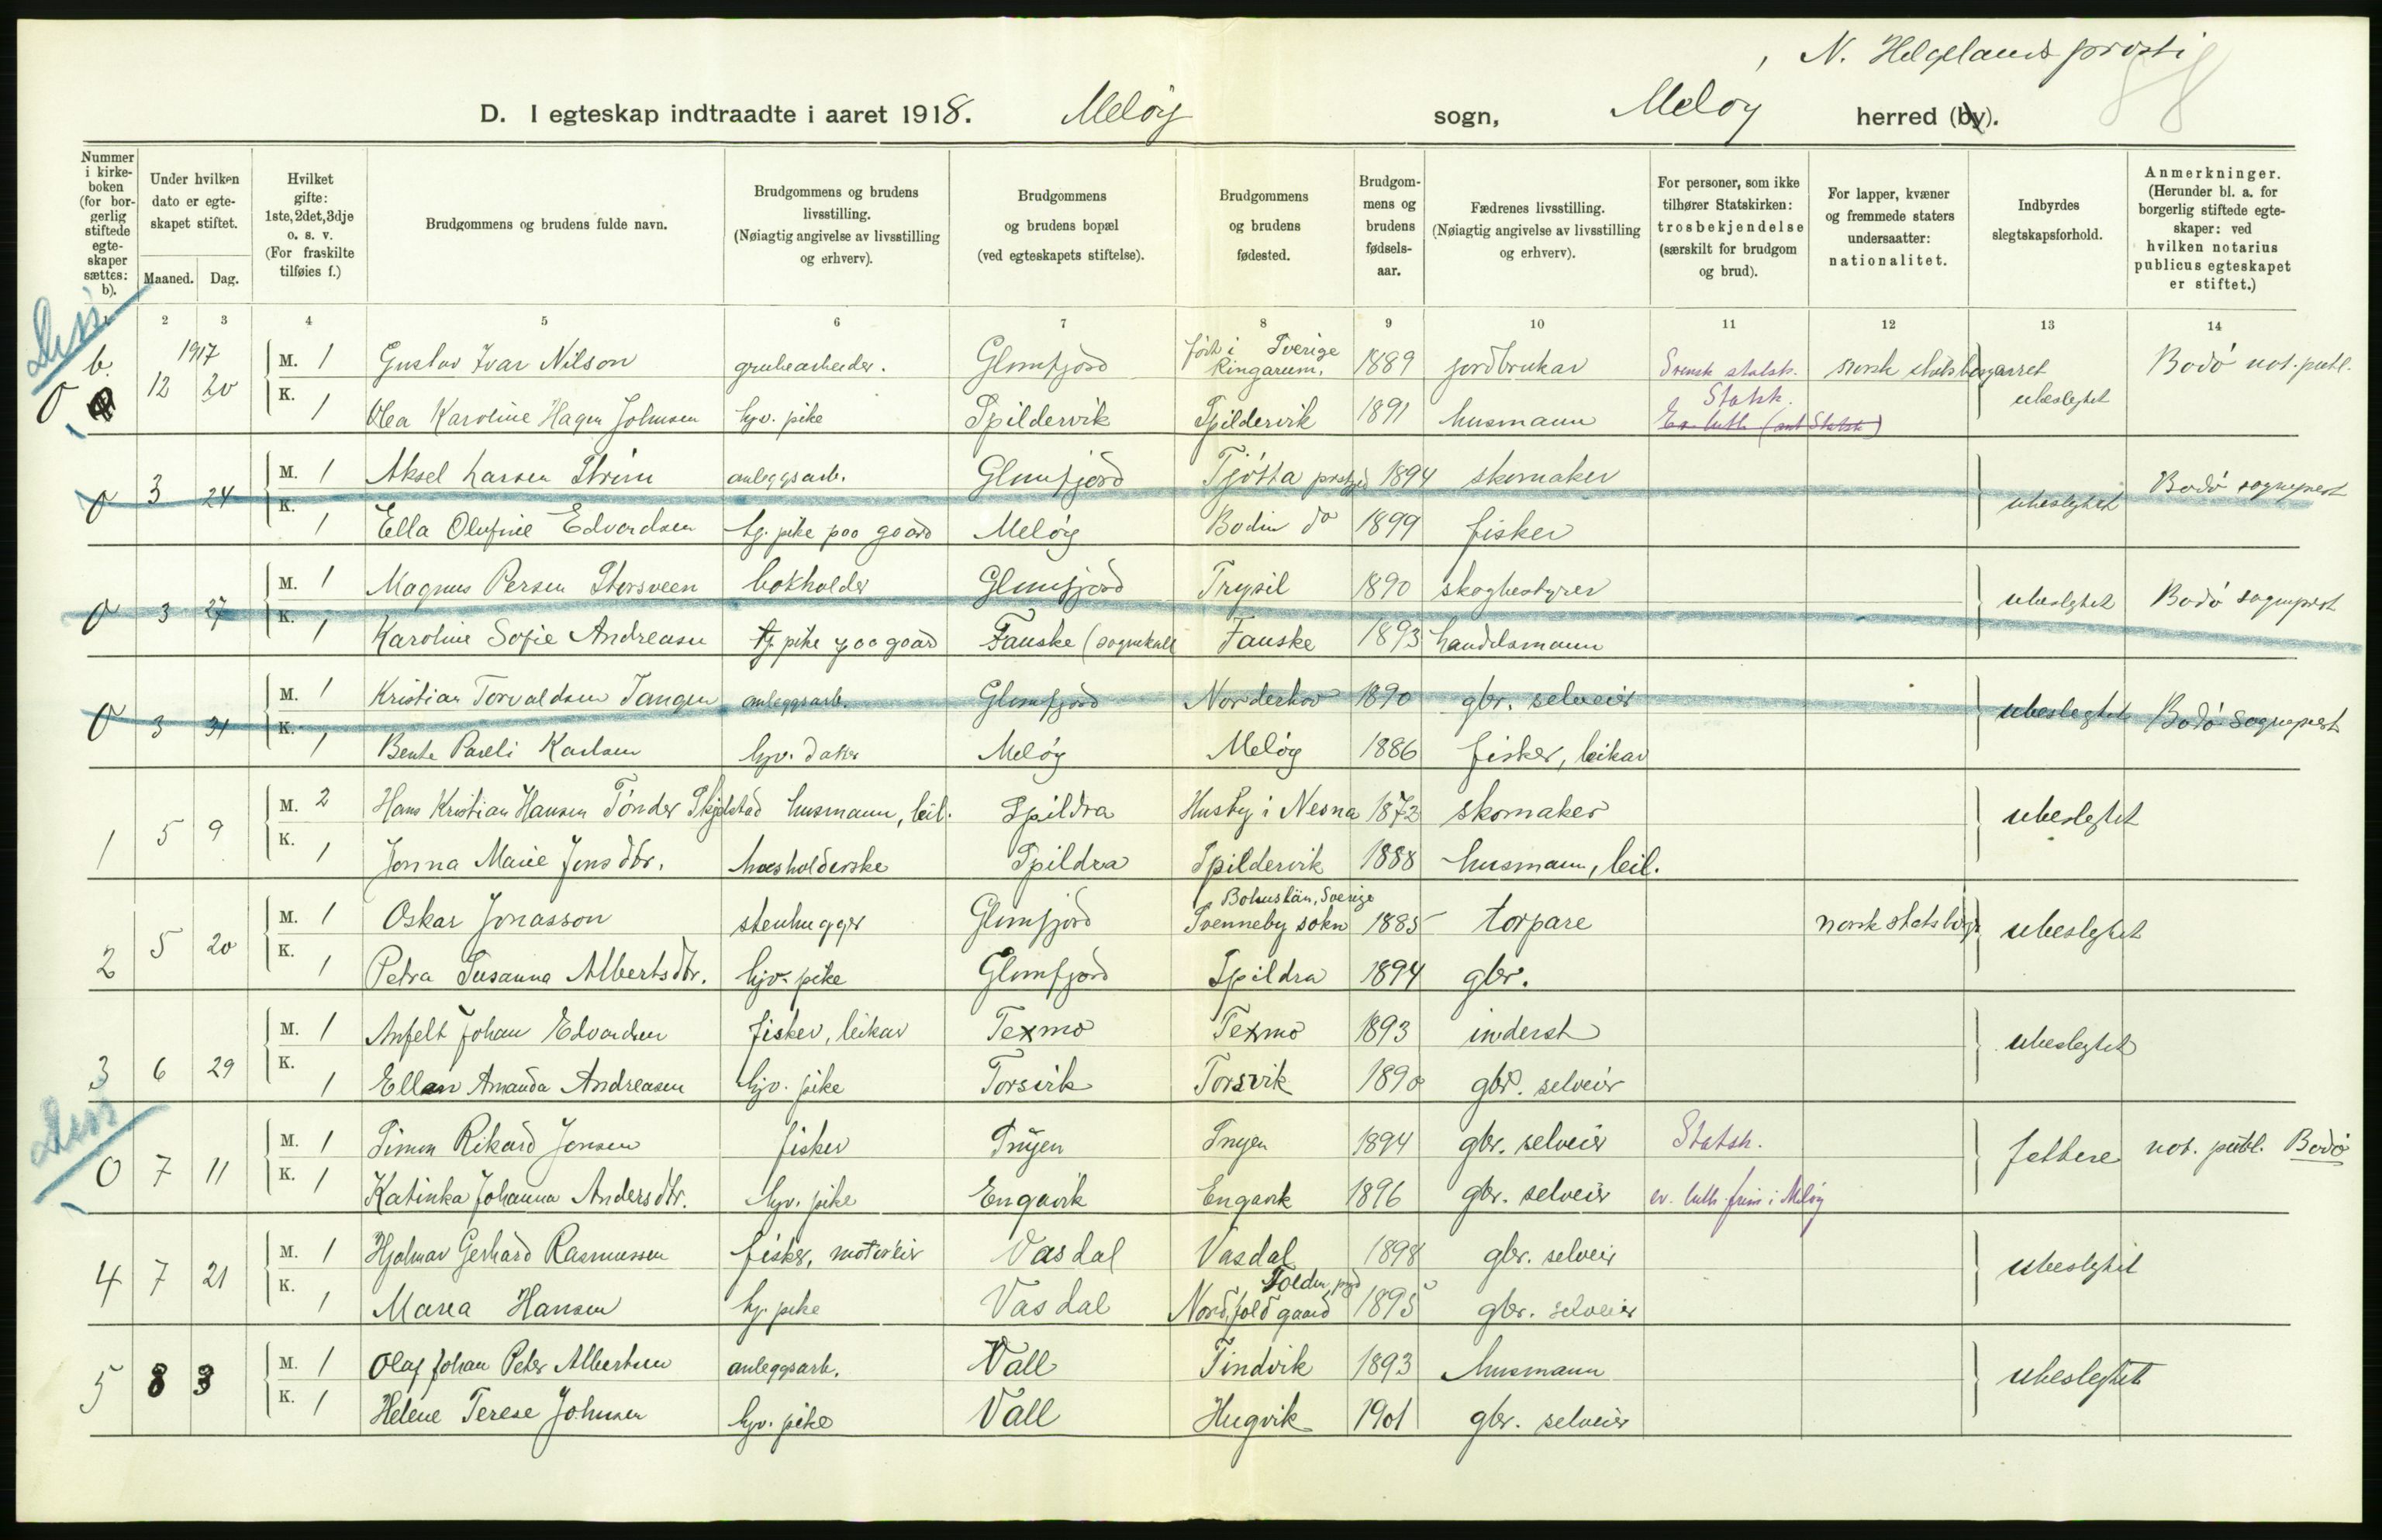 , N. Helgelands prosti
88
D. I egteskap indtraadte i aaret 1918. Meløy sogn, Meløy herred (by).
Nummer i kirkeboken (for borgerlig stiftede egteskaper sættes: b).
Under hvilken dato er egteskapet stiftet.
Maaned. Dag.
Hvilket gifte: 1ste, 2det, 3dje o. s. v. (For fraskilte tilføies f.)
Brudgommens og brudens fulde navn.
Brudgommens og brudens livsstilling. (Nøiagtig angivelse av livsstilling og erhverv).
Brudgommens og brudens bopæl (ved egteskapets stiftelse).
Brudgommens og brudens fødested.
Brudgommens og brudens fødselsaar.
Fædrenes livsstilling. (Nøiagtig angivelse av livsstilling og erhverv).
For personer, som ikke tilhører Statskirken: trosbekjendelse (særskilt for brudgom og brud).
For lapper, kvæner og fremmede staters undersaatter: nationalitet.
Indbyrdes slegtskapsforhold.
Anmerkninger. (Herunder bl. a. for borgerlig stiftede egteskaper: ved hvilken notarius publicus egteskapet er stiftet.)
1 2 3 4 5 6 7 8 9 10 11 12 13 14
Diss
b. 1917 12 20 M. 1 Gustav Ivar Nilson grubearbeider. Glomfjord født i Sverige Ringarum. 1889 jordbrukar Svensk statsk. norsk statsborgarret ubeslegtet Bodø not. publ.
0 K. 1 Olea Karoline Hagen Johnsen hjv. pike Spildervik Spildervik 1891 husmann Statsk. Ev. luth. (ant Statsk)
0 3 24 M. 1 Aksel Larsen Strøm anleggsarb. Glomfjord Tjøtta prstgjd 1894 skomaker ubeslegtet Bodø sogneprest
K. 1 Ella Olufine Edvardsen tj. pike paa gaard Meløy Bodin do 1899 fisker
0 3 27 M. 1 Magnus Persen Storsveen bokholder Glomfjord Trysil 1890 skogbestyrer ubeslegtet Bodø sogneprest
K. 1 Karoline Sofie Andreasen tj. pike paa gaard Fauske (sognekall Fauske 1893 handelsmann
0 3 31 M. 1 Kristian Torvaldsen Tangen anleggsarb. Glomfjord Norderhov 1890 gbr. selveier ubeslegtet Bodø Sogneprest
K. 1 Bente Pareli Karlsen hjv. datter Meløy Meløy 1886 fisker, leikar
1 5 9 M. 2 Hans Kristian Hansen Tønder Skjelstad husmann, leil. Spildra Husby i Nesna 1872 skomaker ubeslegtet
K. 1 Jonna Marie Jensdtr. husholderske Spildra Spildervik 1888 husmann, leil.
2 5 20 M. 1 Oskar Jonasson stenhugger Glomfjord Bohuslän, Sverige Svenneby sokn 1885 torpare norsk statsborger ubeslegtet
K. 1 Petra Susanna Albertsdtr. hjv. pike Glomfjord Spildra 1894 gbr.
3 6 29 M. 1 Anfelt Johan Edvardsen fisker, leikar Texmo Texmo 1893 inderst ubeslegtet
K. 1 Ellen Amanda Andreasen hjv. pike Torsvik Torsvik 1890 gbr. selveier
Diss
0 7 11 M. 1 Simon Rikard Jensen fisker Inyen Inyen 1894 gbr. selveier Statsk. fettere not. publ. Bodø
K. 1 Katinka Johanna Andersdtr. hjv. pike Engavik Engavik 1896 gbr. selveier ev. luth. frim i Meløy
4 7 21 M. 1 Hjalmar Gerhard Rasmussen fisker, motoreier Vasdal Vasdal 1898 gbr. selveier ubeslegtet
K. 1 Marea Hansen tj. pike Vasdal Nordfold gaard Folden pgd 1895 gbr. selveier
5 8 3 M. 1 Olaf Johan Peter Albertsen anleggsarb. Vall Tindvik 1893 husmann ubeslegtet
K. 1 Helene Terese Johnsen hjv. pike Vall Hugvik 1901 gbr. selveier